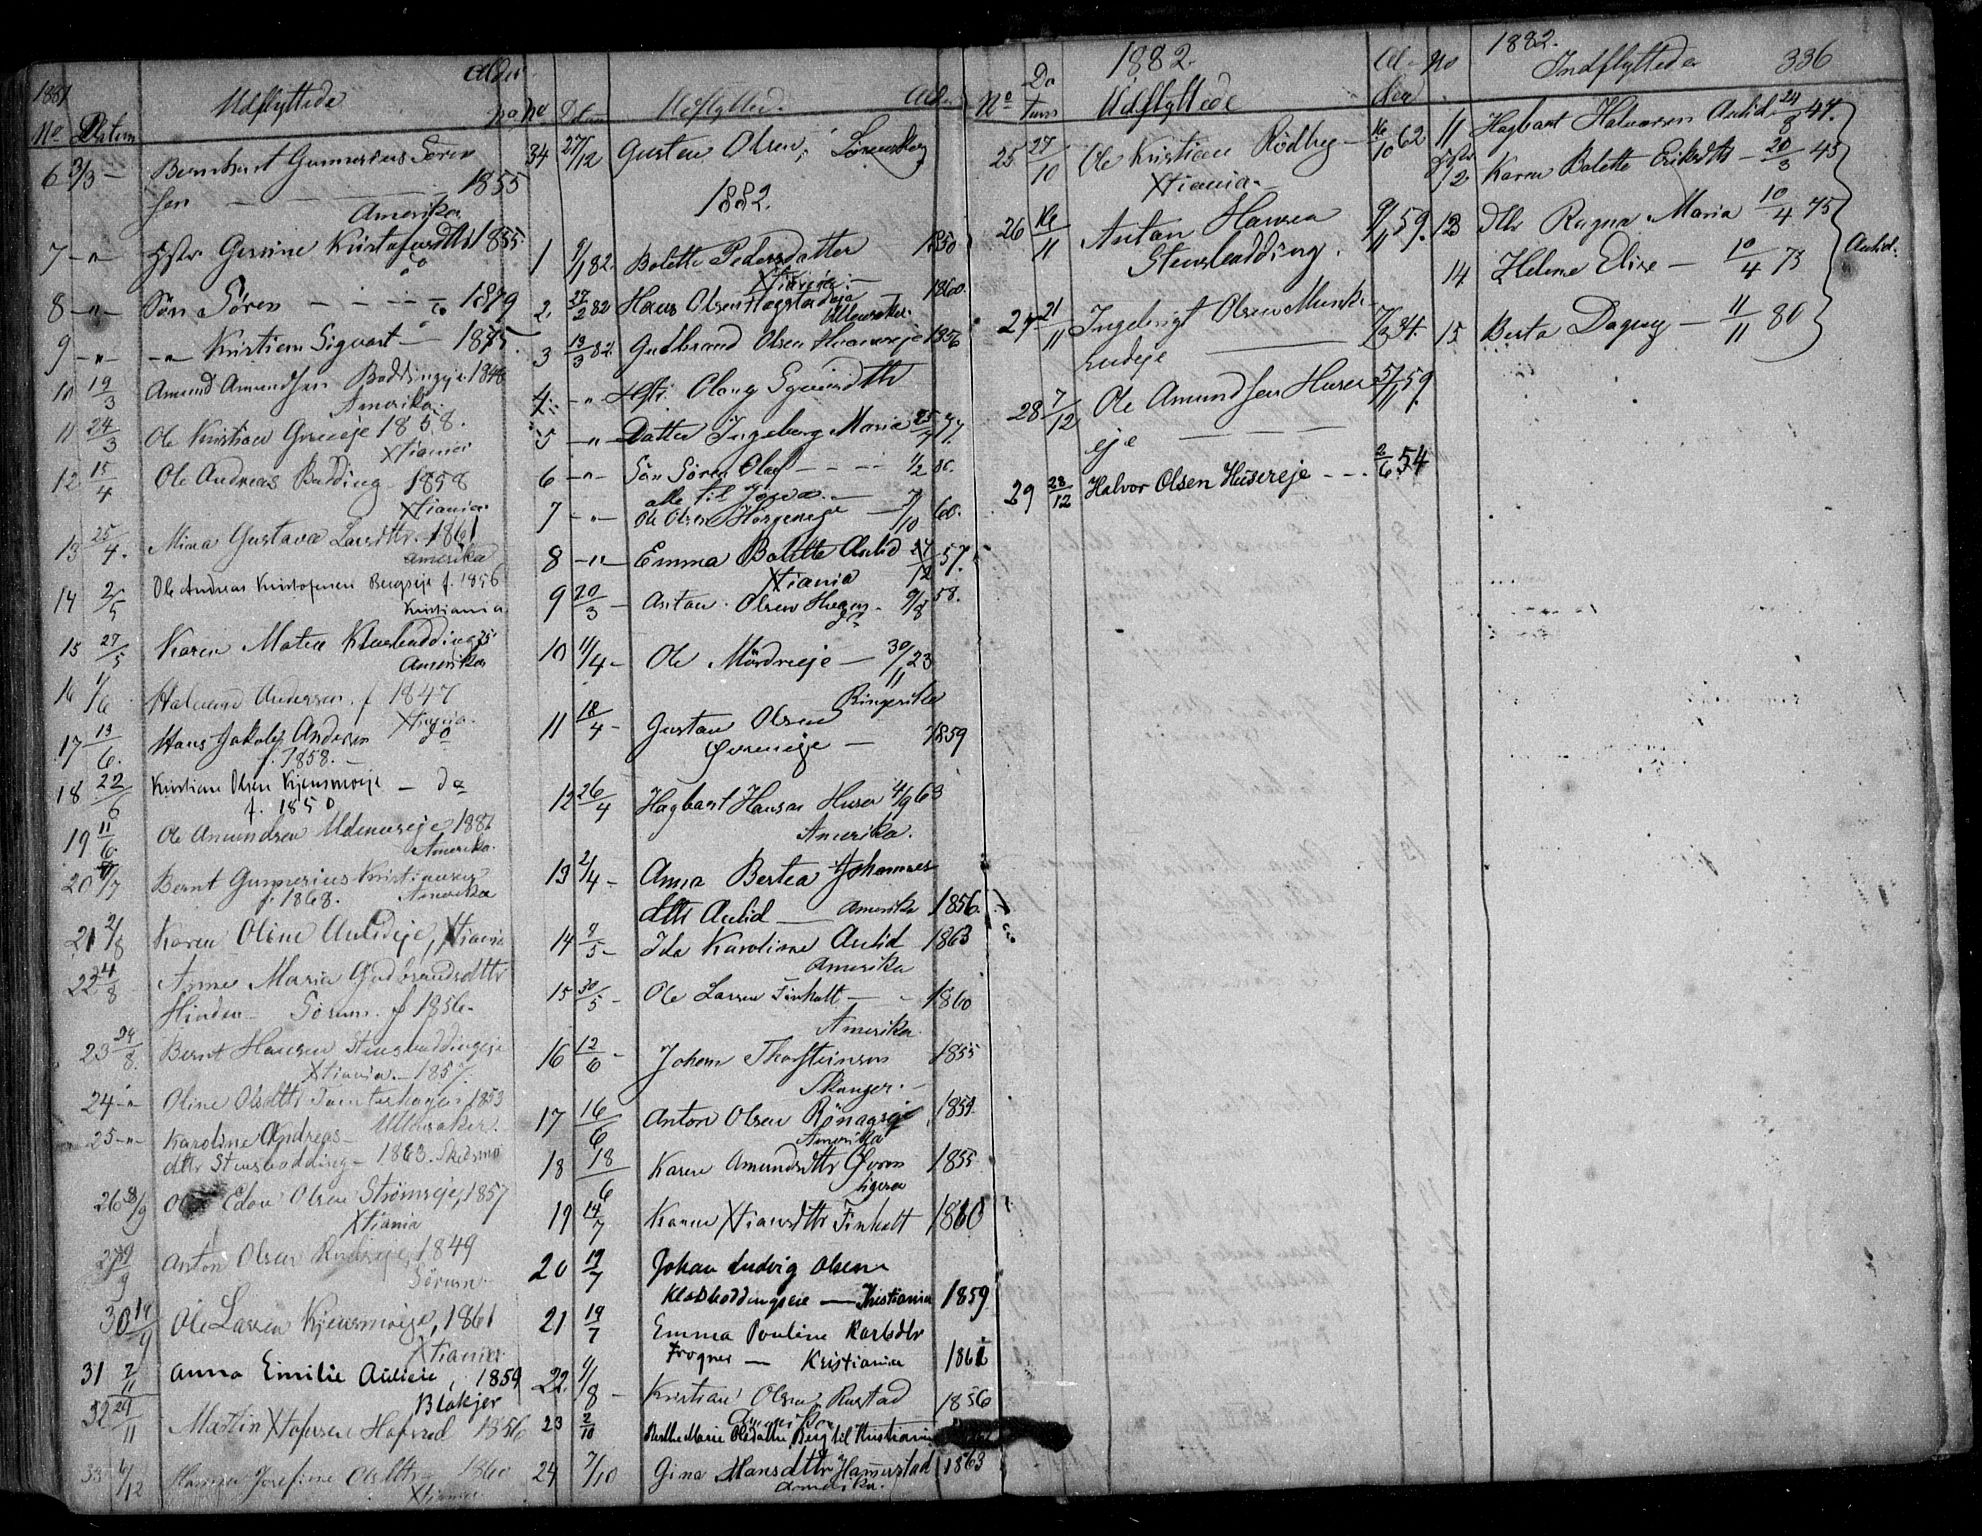 1881 Udflyttede Alder
No Datum
6 3/3 - Bernhart Gunnerius Sören
sen - - - 1855
Amerika
7 - " - Hstr Gurine Kristofersdttr 1855
do
8 - " - Sön Sören - - - 1879
do
9 - " - - " - Kristian Sigvart - 1875
10 19/3 Amund Amundsen Boddingeje 1848
Amerika
11 24/3 Ole Kristian 1858.
Xtiania
12 15/4 Ole Andreas Bödding 1858
Xtiania.
13 25/4. Mina Gustava Larsdttr. 1861
Amerika
14 2/5 Ole Andreas Kristofersen Bergseje f. 1856
Kristiania
15 27/5 Karen Mathea
Amerika
16 1/6 Halvard Andersen. f 1847
Xtiania.
17 13/6. Hans Jakob Andersen do
f. 1858. -
18 22/6 Kristian Olsen Kjensmoeje - do
f. 1850
19 11/6 Ole Amundsen 1881
Amerika.
20 4/7 Bernt Gunnerius Kristiansen
f. 1868. Amerika
21 2/8 Karen Oline Aulideje, Xtiania
22 24/8 Anne Maria Gudbrandsdttr
Hinden - Sörum. f 1856.
23 29/8. Bernt Hansen Stensboddingeje
Xtiania. - 1857.
24 - " - Oline Olsdttr Tomterhagen 1853
Ullensaker.
25 - " - Karoline Andreas-
dttr Stensbodding - 1863. Skedsmo
26 8/9 Ole Edon Olsen Strömseje, 1857
Xtiania
27 9/9 Anton Olsen 1849
Sörum -
30 14/9 Ole Larsen Kjensmoeje, 1861
Xtiania
31 2/11 Anna Emilie Auliere, 1859
Blakjer
32 29/11 Martin Xtofersen Hofved 1856
33 6/12 Hanna Josefine Olsdttr 1860
Xtiania
No Datum Udflyttede. Ald.
34 27/12 Gustav Olsen, Lörenskog
1882.
1 9/1 82. Bolette Pedersdatter 1850
Xtiania. -
2. 27/2 82 Hans Olsen 1860.
Ullensaker.
3 13/3 82. Gudbrand Olsen 1856
4. - " - Hstr. Olaug
5 - " - Datter Ingeborg Maria 25/7 77
6 - " - Sön Sören Olaf - - - 1/2 80.
alle til Jowa. -
7 - " - Ole Olsen Horgeneje - 7/10 60.
8 - " - Emma Bolette Aulid 24/12 57.
Xtiania
9 20/3 - Anton Olsen 9/8 58.
10 11/4 - Ole Mördreeje - 30/11 23
Ringerike
11 18/4 - Gustav Olsen
Övreneje - 1859
12 26/4 Hagbart Hansen Huser 4/9 63
Amerika.
13 2/4 - Anna Bertea Johannes
dttr Aulid - Amerika 1856.
14 2/5 - Ida Karoline Aulid 1863
Amerika
15 30/5 - Ole Larsen Finholt - - 1860
Amerika.
16 12/6 - Johan Thorsteinsen 1855
Skanger. -
17 16/6 Anton Olsen Rönaaseje 1859.
Amerika
18 18/6 Karen Amundsdttr 1855
19 14/7 Karen Xtiansdttr Finholt 1860
20 19/7 Johan Ludvig Olsen
Klosboddingseie - Kristiania 1859
21 19/7 Emma Pouline Karlsdtr
Frogner - Kristiania 1861
22. 1/8 - Kristian Olsen Rustad 1856
Amerika
23 2/10 Berthe Marie Olsdatter Berg til Kristiania
24 7/10 Gina Hansdttr Hammerstad 1863
Amerika.
1882.
No Datum Udflyttede Alder
25 27/10 Ole Kristian Rödberg - 16/10 62
Xtiania. -
26 16/11 Anton Hansen 9/11 59.
Stensbodding.
27 21/11 Ingebrigt Olsen Munke-
rudeje - 7/3 34.
28 7/12 Ole Amundsen Huser 5/11 59.
eje - - -
29 28/12 Halvor Olsen Husereje - - 2/6 54
1882.
No Indflyttede 336
11 Hagbart Halvorsen Aulid 24/8 47.
Hstr 12 Karen Bolette Eriksdttr - 20/3 45
13 dttr Ragna Maria 10/4 75
14 Helene Elise - 10/4 73 Aulid.
15 Berta Dagny - 11/11 80